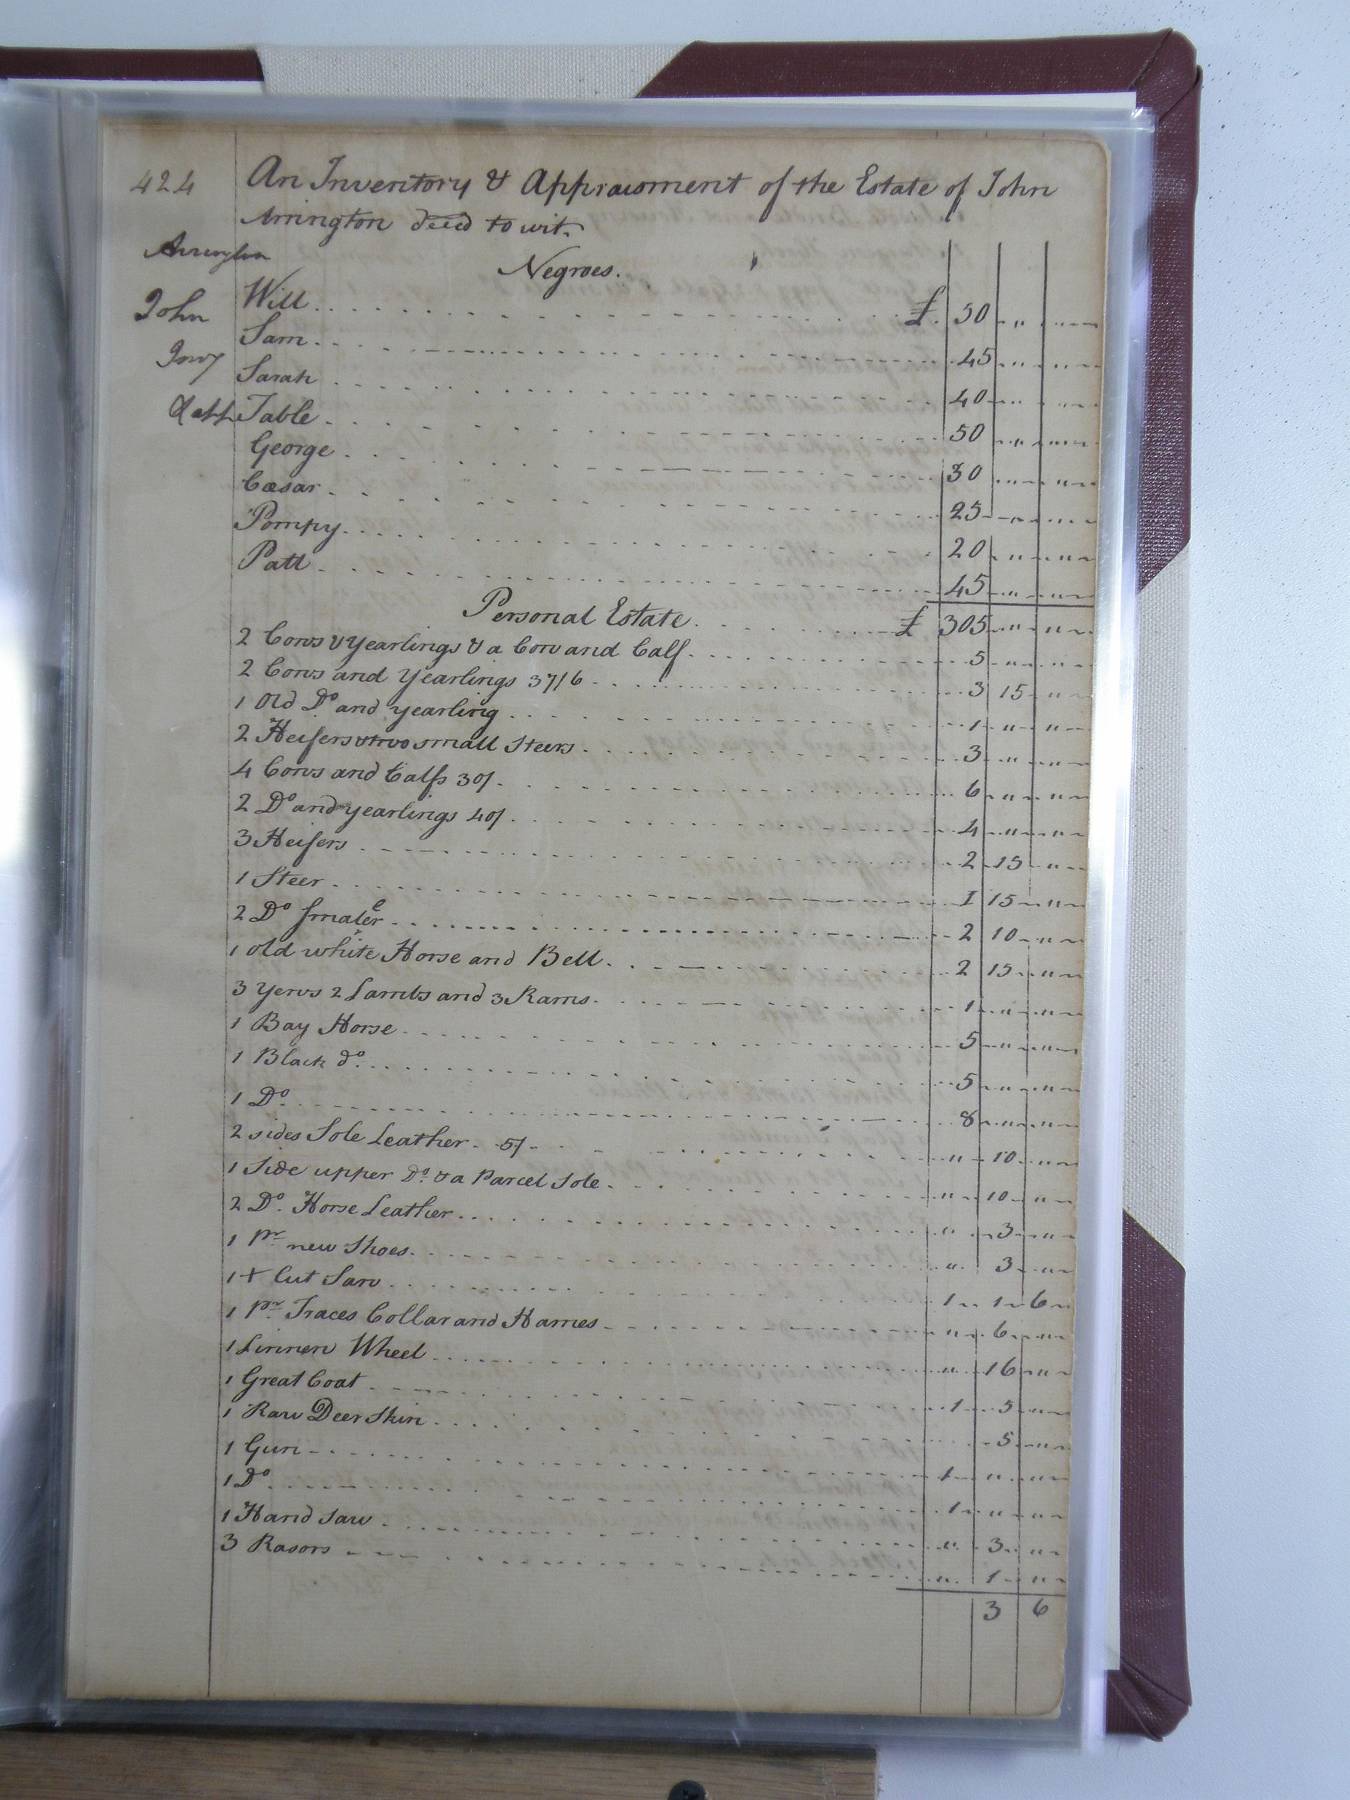 424
An Inventory & Appraisment of the Estate of John
Arrington decd to wit.
Arrington
John
Invy
& app
Negroes.
Will £ 50 " "
Sam 45 " "
Sarah 40 " "
Table 50 " "
George 30 " "
Cæsar 25 " "
Pompy 20 " "
Patt 45 " "
Personal Estate £ 305 " "
2 Cows & Yearlings & a Cow and Calf 5 " "
2 Cows and Yearlings 37/6 3 15 "
1 Old Do and yearling 1 " "
2 Heifers & two small Steers 3 " "
4 Cows and Calfs 30/ 6 " "
2 Do and yearlings 40/ 4 " "
3 Heifers 2 15 "
1 Steer 1 15 "
2 Do smaler 2 10 "
1 old white Horse and Bell 2 15 "
3 Yews 2 Lambs and 3 Rams 1 " "
1 Bay Horse 5 " "
1 Black do 5 " "
1 Do 8 " "
2 sides Sole Leather 5/ " 10 "
1 Side upper Do & a Parcel Sole " 10 "
2 Do Horse Leather " 3 "
1 pr new Shoes " 3 "
1 + Cut Saw 1 1 6
1 pr Traces Collar and Hames " 6 "
1 Linnen Wheel " 16 "
1 Great Coat 1 5 "
1 Raw Deer Skin 5 "
1 Gun 1 " "
1 Do 1 " "
1 Hand Saw " 3 "
3 Rasors " 1 "
3 6